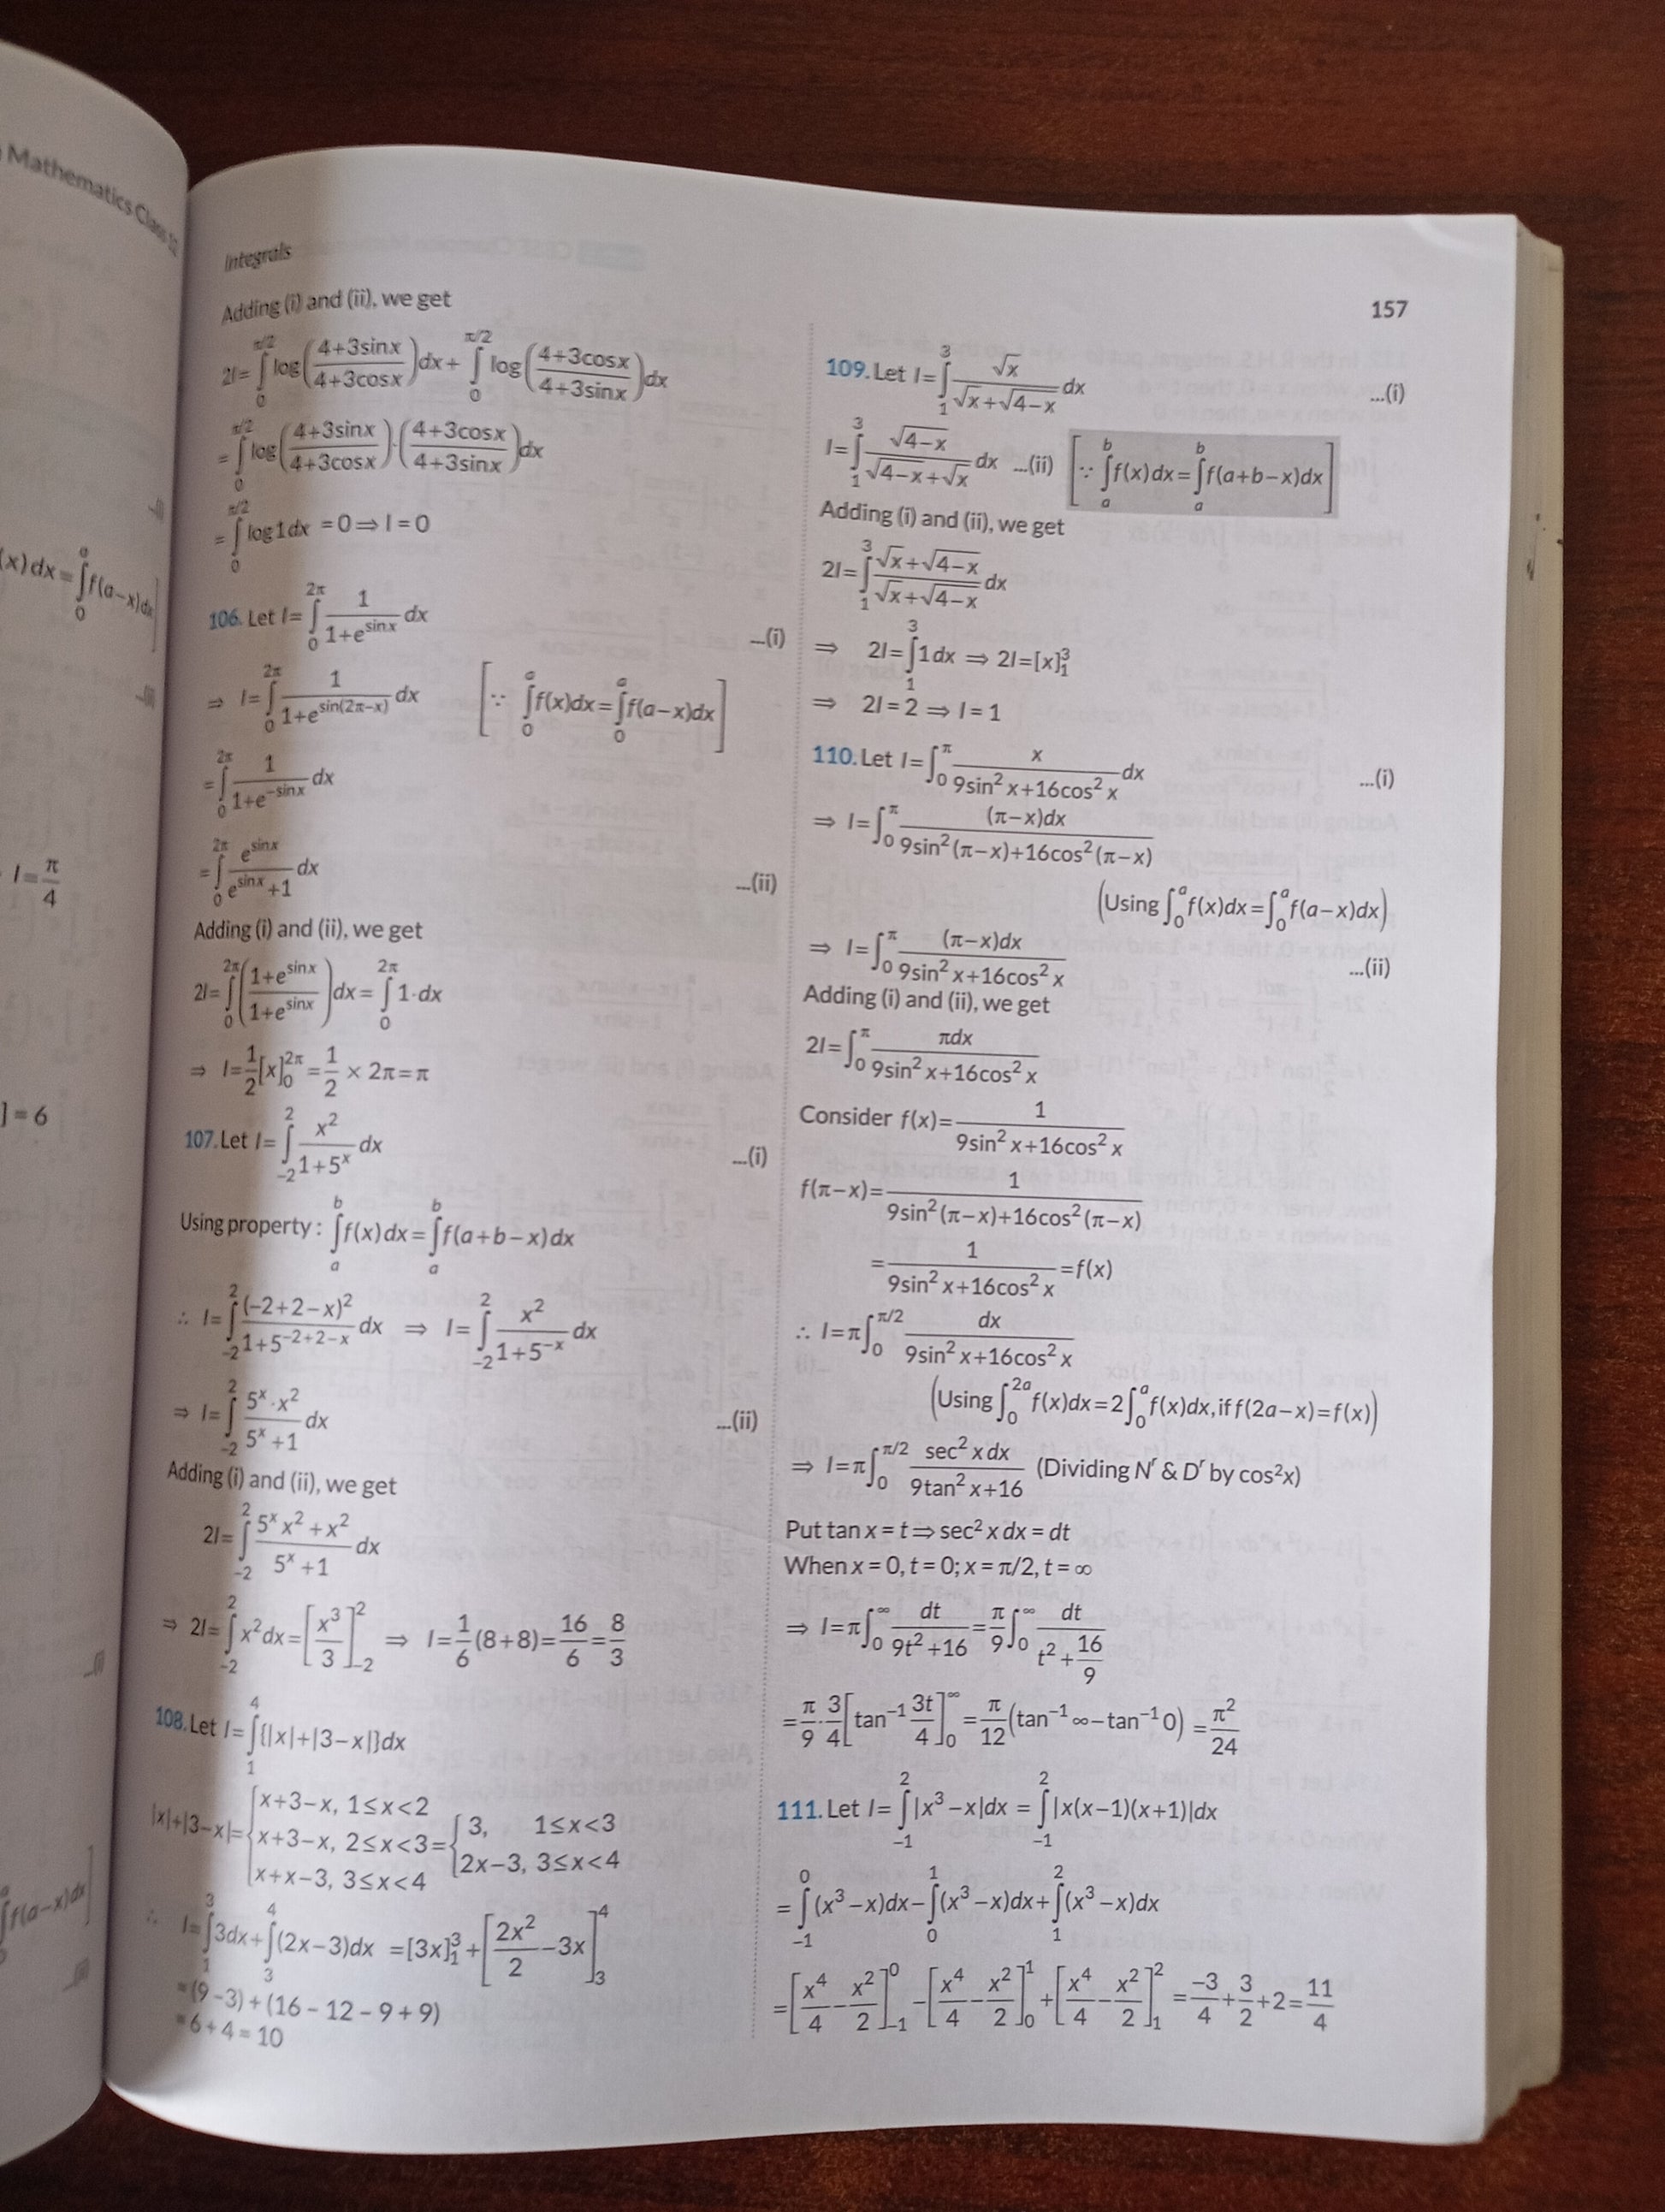 Mathematics Class 12
(x)dx=∫₀ᵃf(a−x)dx]
I=π/4
]=6
∫f(a−x)dx]
Integrals
157
Adding (i) and (ii), we get
2I=∫₀^{π/2} log((4+3sinx)/(4+3cosx))dx+∫₀^{π/2} log((4+3cosx)/(4+3sinx))dx
=∫₀^{π/2} log((4+3sinx)/(4+3cosx))·((4+3cosx)/(4+3sinx))dx
=∫₀^{π/2} log1dx =0⇒I=0
106. Let I=∫₀^{2π} 1/(1+e^{sinx}) dx ...(i)
⇒ I=∫₀^{2π} 1/(1+e^{sin(2π−x)}) dx [∵ ∫₀ᵃf(x)dx=∫₀ᵃf(a−x)dx]
=∫₀^{2π} 1/(1+e^{−sinx}) dx
=∫₀^{2π} e^{sinx}/(e^{sinx}+1) dx ...(ii)
Adding (i) and (ii), we get
2I=∫₀^{2π}((1+e^{sinx})/(1+e^{sinx}))dx=∫₀^{2π} 1·dx
⇒ I=1/2[x]₀^{2π}=1/2 × 2π=π
107. Let I=∫₋₂² x²/(1+5ˣ) dx ...(i)
Using property : ∫ₐᵇf(x)dx=∫ₐᵇf(a+b−x)dx
∴ I=∫₋₂² (−2+2−x)²/(1+5^{−2+2−x}) dx ⇒ I=∫₋₂² x²/(1+5^{−x}) dx
⇒ I=∫₋₂² 5ˣ·x²/(5ˣ+1) dx ...(ii)
Adding (i) and (ii), we get
2I=∫₋₂² (5ˣx²+x²)/(5ˣ+1) dx
⇒ 2I=∫₋₂² x²dx=[x³/3]₋₂² ⇒ I=1/6(8+8)=16/6=8/3
108. Let I=∫₁⁴{|x|+|3−x|}dx
|x|+|3−x|={x+3−x, 1≤x<2
x+3−x, 2≤x<3={3, 1≤x<3
x+x−3, 3≤x<4 2x−3, 3≤x<4
∴ I=∫₁³3dx+∫₃⁴(2x−3)dx =[3x]₁³+[2x²/2−3x]₃⁴
=(9−3)+(16−12−9+9)
=6+4=10
109. Let I=∫₁³ √x/(√x+√(4−x)) dx ...(i)
I=∫₁³ √(4−x)/(√(4−x)+√x) dx ...(ii) [∵ ∫ₐᵇf(x)dx=∫ₐᵇf(a+b−x)dx]
Adding (i) and (ii), we get
2I=∫₁³ (√x+√(4−x))/(√x+√(4−x)) dx
⇒ 2I=∫₁³1dx ⇒ 2I=[x]₁³
⇒ 2I=2⇒I=1
110. Let I=∫₀^π x/(9sin²x+16cos²x) dx ...(i)
⇒ I=∫₀^π (π−x)dx/(9sin²(π−x)+16cos²(π−x))
(Using ∫₀ᵃf(x)dx=∫₀ᵃf(a−x)dx)
⇒ I=∫₀^π (π−x)dx/(9sin²x+16cos²x) ...(ii)
Adding (i) and (ii), we get
2I=∫₀^π πdx/(9sin²x+16cos²x)
Consider f(x)=1/(9sin²x+16cos²x)
f(π−x)=1/(9sin²(π−x)+16cos²(π−x))
=1/(9sin²x+16cos²x)=f(x)
∴ I=π∫₀^{π/2} dx/(9sin²x+16cos²x)
(Using ∫₀^{2a}f(x)dx=2∫₀ᵃf(x)dx, if f(2a−x)=f(x))
⇒ I=π∫₀^{π/2} sec²xdx/(9tan²x+16) (Dividing Nʳ & Dʳ by cos²x)
Put tan x = t⇒sec²x dx = dt
When x = 0, t = 0; x = π/2, t = ∞
⇒ I=π∫₀^∞ dt/(9t²+16)=π/9∫₀^∞ dt/(t²+16/9)
=π/9·3/4[tan⁻¹ 3t/4]₀^∞=π/12(tan⁻¹∞−tan⁻¹0)=π²/24
111. Let I=∫₋₁²|x³−x|dx=∫₋₁²|x(x−1)(x+1)|dx
=∫₋₁⁰(x³−x)dx−∫₀¹(x³−x)dx+∫₁²(x³−x)dx
=[x⁴/4−x²/2]₋₁⁰−[x⁴/4−x²/2]₀¹+[x⁴/4−x²/2]₁²=−3/4+3/2+2=11/4